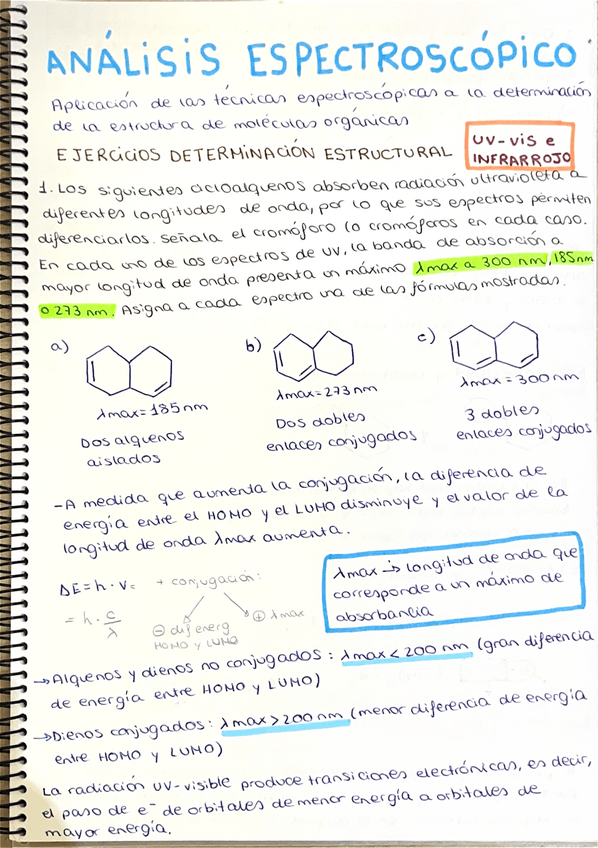 ANÁLISIS ESPECTROSCÓPICO
Aplicación de las técnicas espectroscópicas a la determinación
de la estructura de moléculas orgánicas
EJERCICIOS DETERMINACIÓN ESTRUCTURAL
UV-VIS e
INFRARROJO
1. Los siguientes cicloalquenos absorben radiación ultravioleta a
diferentes longitudes de onda, por lo que sus espectros permiten
diferenciarlos. Señala el cromóforo (o cromóforos en cada caso.
En cada uno de los espectros de UV, la banda de absorción a
mayor longitud de onda presenta un máximo λmax a 300 nm, 185nm
o 273 nm. Asigna a cada espectro una de las fórmulas mostradas.
a)
b)
c)
λmax = 185 nm
λmax = 273 nm
λmax = 300 nm
Dos alquenos
aislados
Dos dobles
enlaces conjugados
3 dobles
enlaces conjugados
-A medida que aumenta la conjugación, la diferencia de
energía entre el HOMO y el LUMO disminuye y el valor de la
longitud de onda λmax aumenta.
ΔE = h · v =
= h · c/λ
+ conjugación:
⊖ dif energ
HOMO y LUMO
⊕ λmax
λmax → longitud de onda que
corresponde a un máximo de
absorbancia
→Alquenos y dienos no conjugados: λmax < 200 nm (gran diferencia
de energía entre HOMO y LUMO)
→Dienos conjugados: λmax > 200 nm (menor diferencia de energía
entre HOMO y LUMO)
La radiación UV-visible produce transiciones electrónicas, es decir,
el paso de e⁻ de orbitales de menor energía a orbitales de
mayor energía.